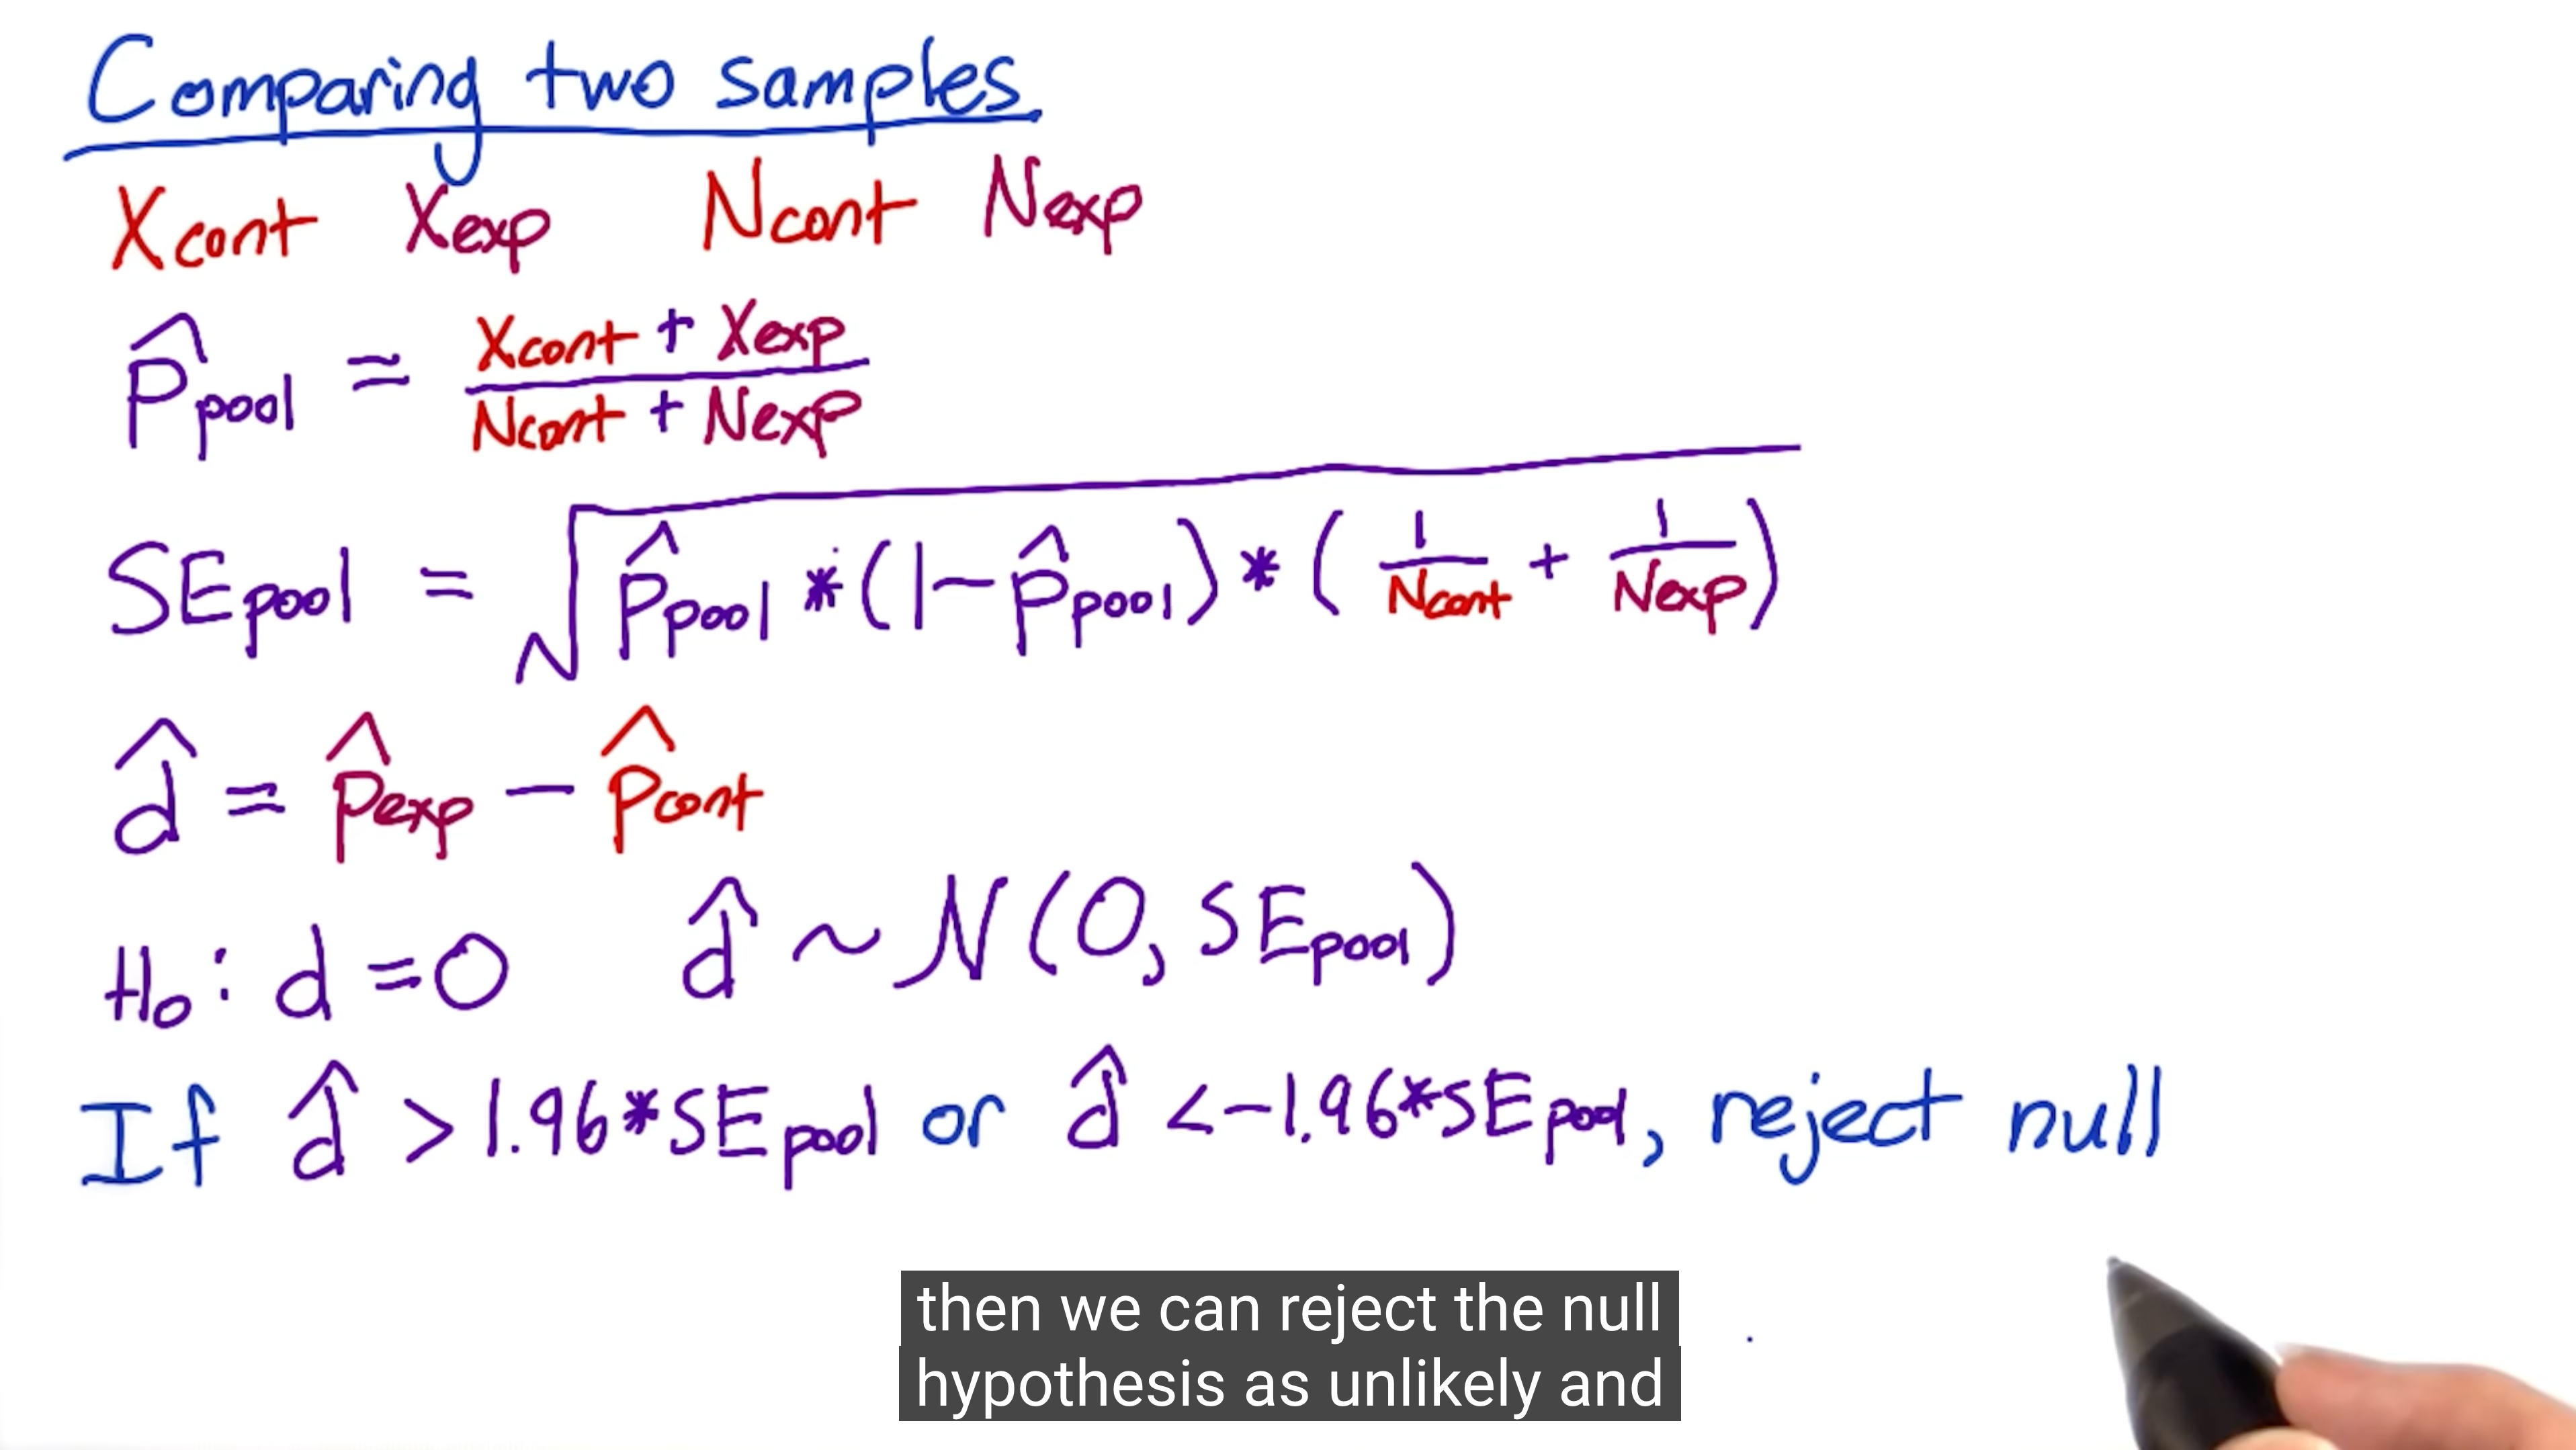 Comparing two samples
Xcont Xexp Ncont Nexp
P̂pool = Xcont + Xexp / Ncont + Nexp
SEpool = √ p̂pool * (1-p̂pool) * ( 1/Ncont + 1/Nexp )
d̂ = p̂exp - p̂cont
H₀: d = 0 d̂ ~ N(0, SEpool)
If d̂ > 1.96*SEpool or d̂ <-1.96*SEpool, reject null
then we can reject the null
hypothesis as unlikely and